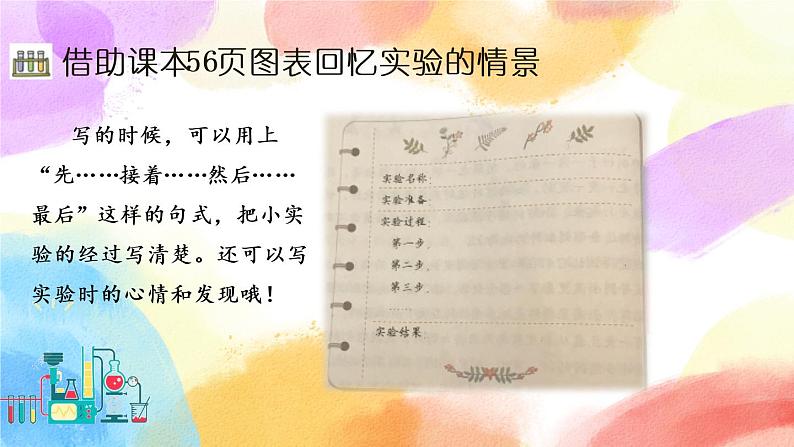 借助课本56页图表回忆实验的情景
写的时候，可以用上
“先……接着……然后……
最后”这样的句式，把小实
验的经过写清楚。还可以写
实验时的心情和发现哦！
实验名称
实验准备
实验过程：
第一步，
第二步，
第三步，
……
实验结果：